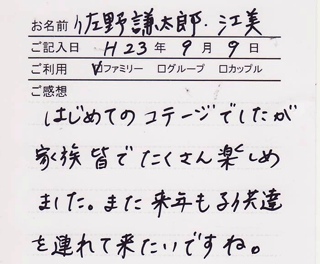 お名前 佐野謙太郎・江美
ご記入日 H23年9月9日
ご利用 ☑ファミリー □グループ □カップル
ご感想
はじめてのコテージでしたが
家族皆でたくさん楽しめ
ました。また来年も子供達
を連れて来たいですね。